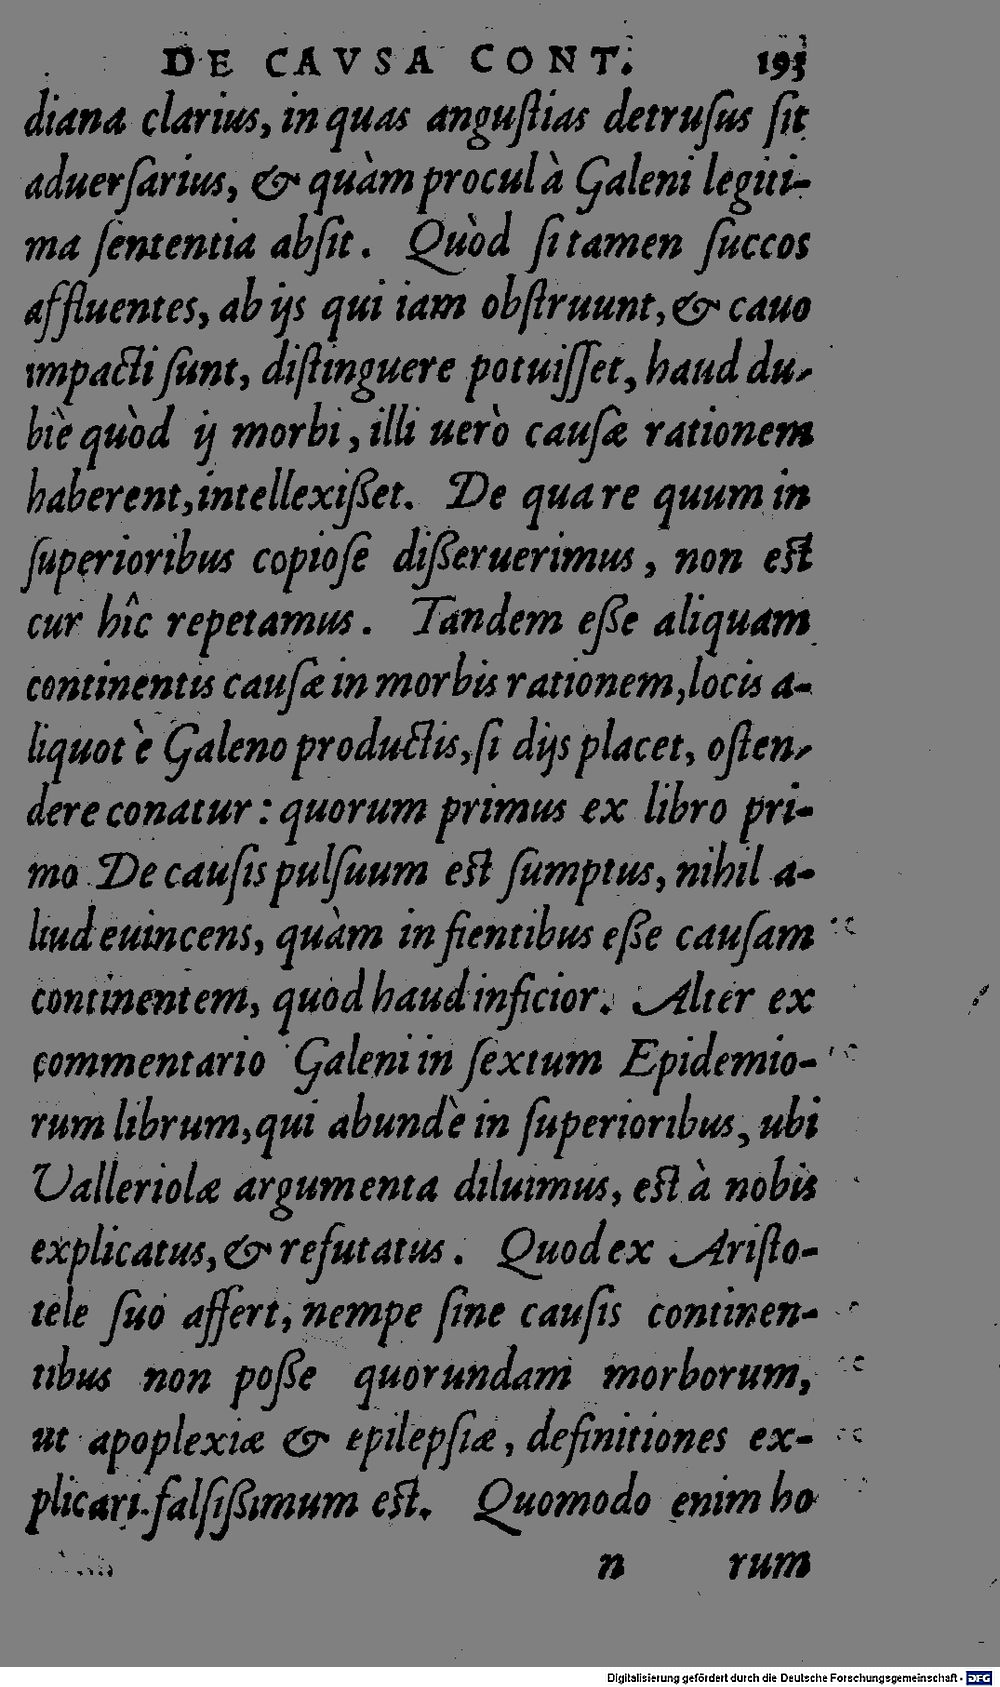 DE CAVSA CONT. 193
diana clarius, in quas angustias detrusus sit
aduersarius, & quàm procul à Galeni legiti-
ma sententia absit. Quòd si tamen succos
affluentes, ab ijs qui iam obstruunt, & cauo
impacti sunt, distinguere potuisset, haud du-
biè quòd ij morbi, illi uerò causæ rationem
haberent, intellexißet. De qua re quum in
superioribus copiose dißeruerimus, non est
cur hîc repetamus. Tandem eße aliquam
continentis causæ in morbis rationem, locis a-
liquot è Galeno productis, si dijs placet, osten-
dere conatur: quorum primus ex libro pri-
mo De causis pulsuum est sumptus, nihil a-
liud euincens, quàm in fientibus eße causam
continentem, quod haud inficior. Alter ex
commentario Galeni in sextum Epidemio-
rum librum, qui abundè in superioribus, ubi
Valleriolæ argumenta diluimus, est à nobis
explicatus, & refutatus. Quod ex Aristo-
tele suo affert, nempe sine causis continen-
tibus non poße quorundam morborum,
ut apoplexiæ & epilepsiæ, definitiones ex-
plicari. falsißimum est. Quomodo enim ho
n rum
Digitalisierung gefördert durch die Deutsche Forschungsgemeinschaft - DFG